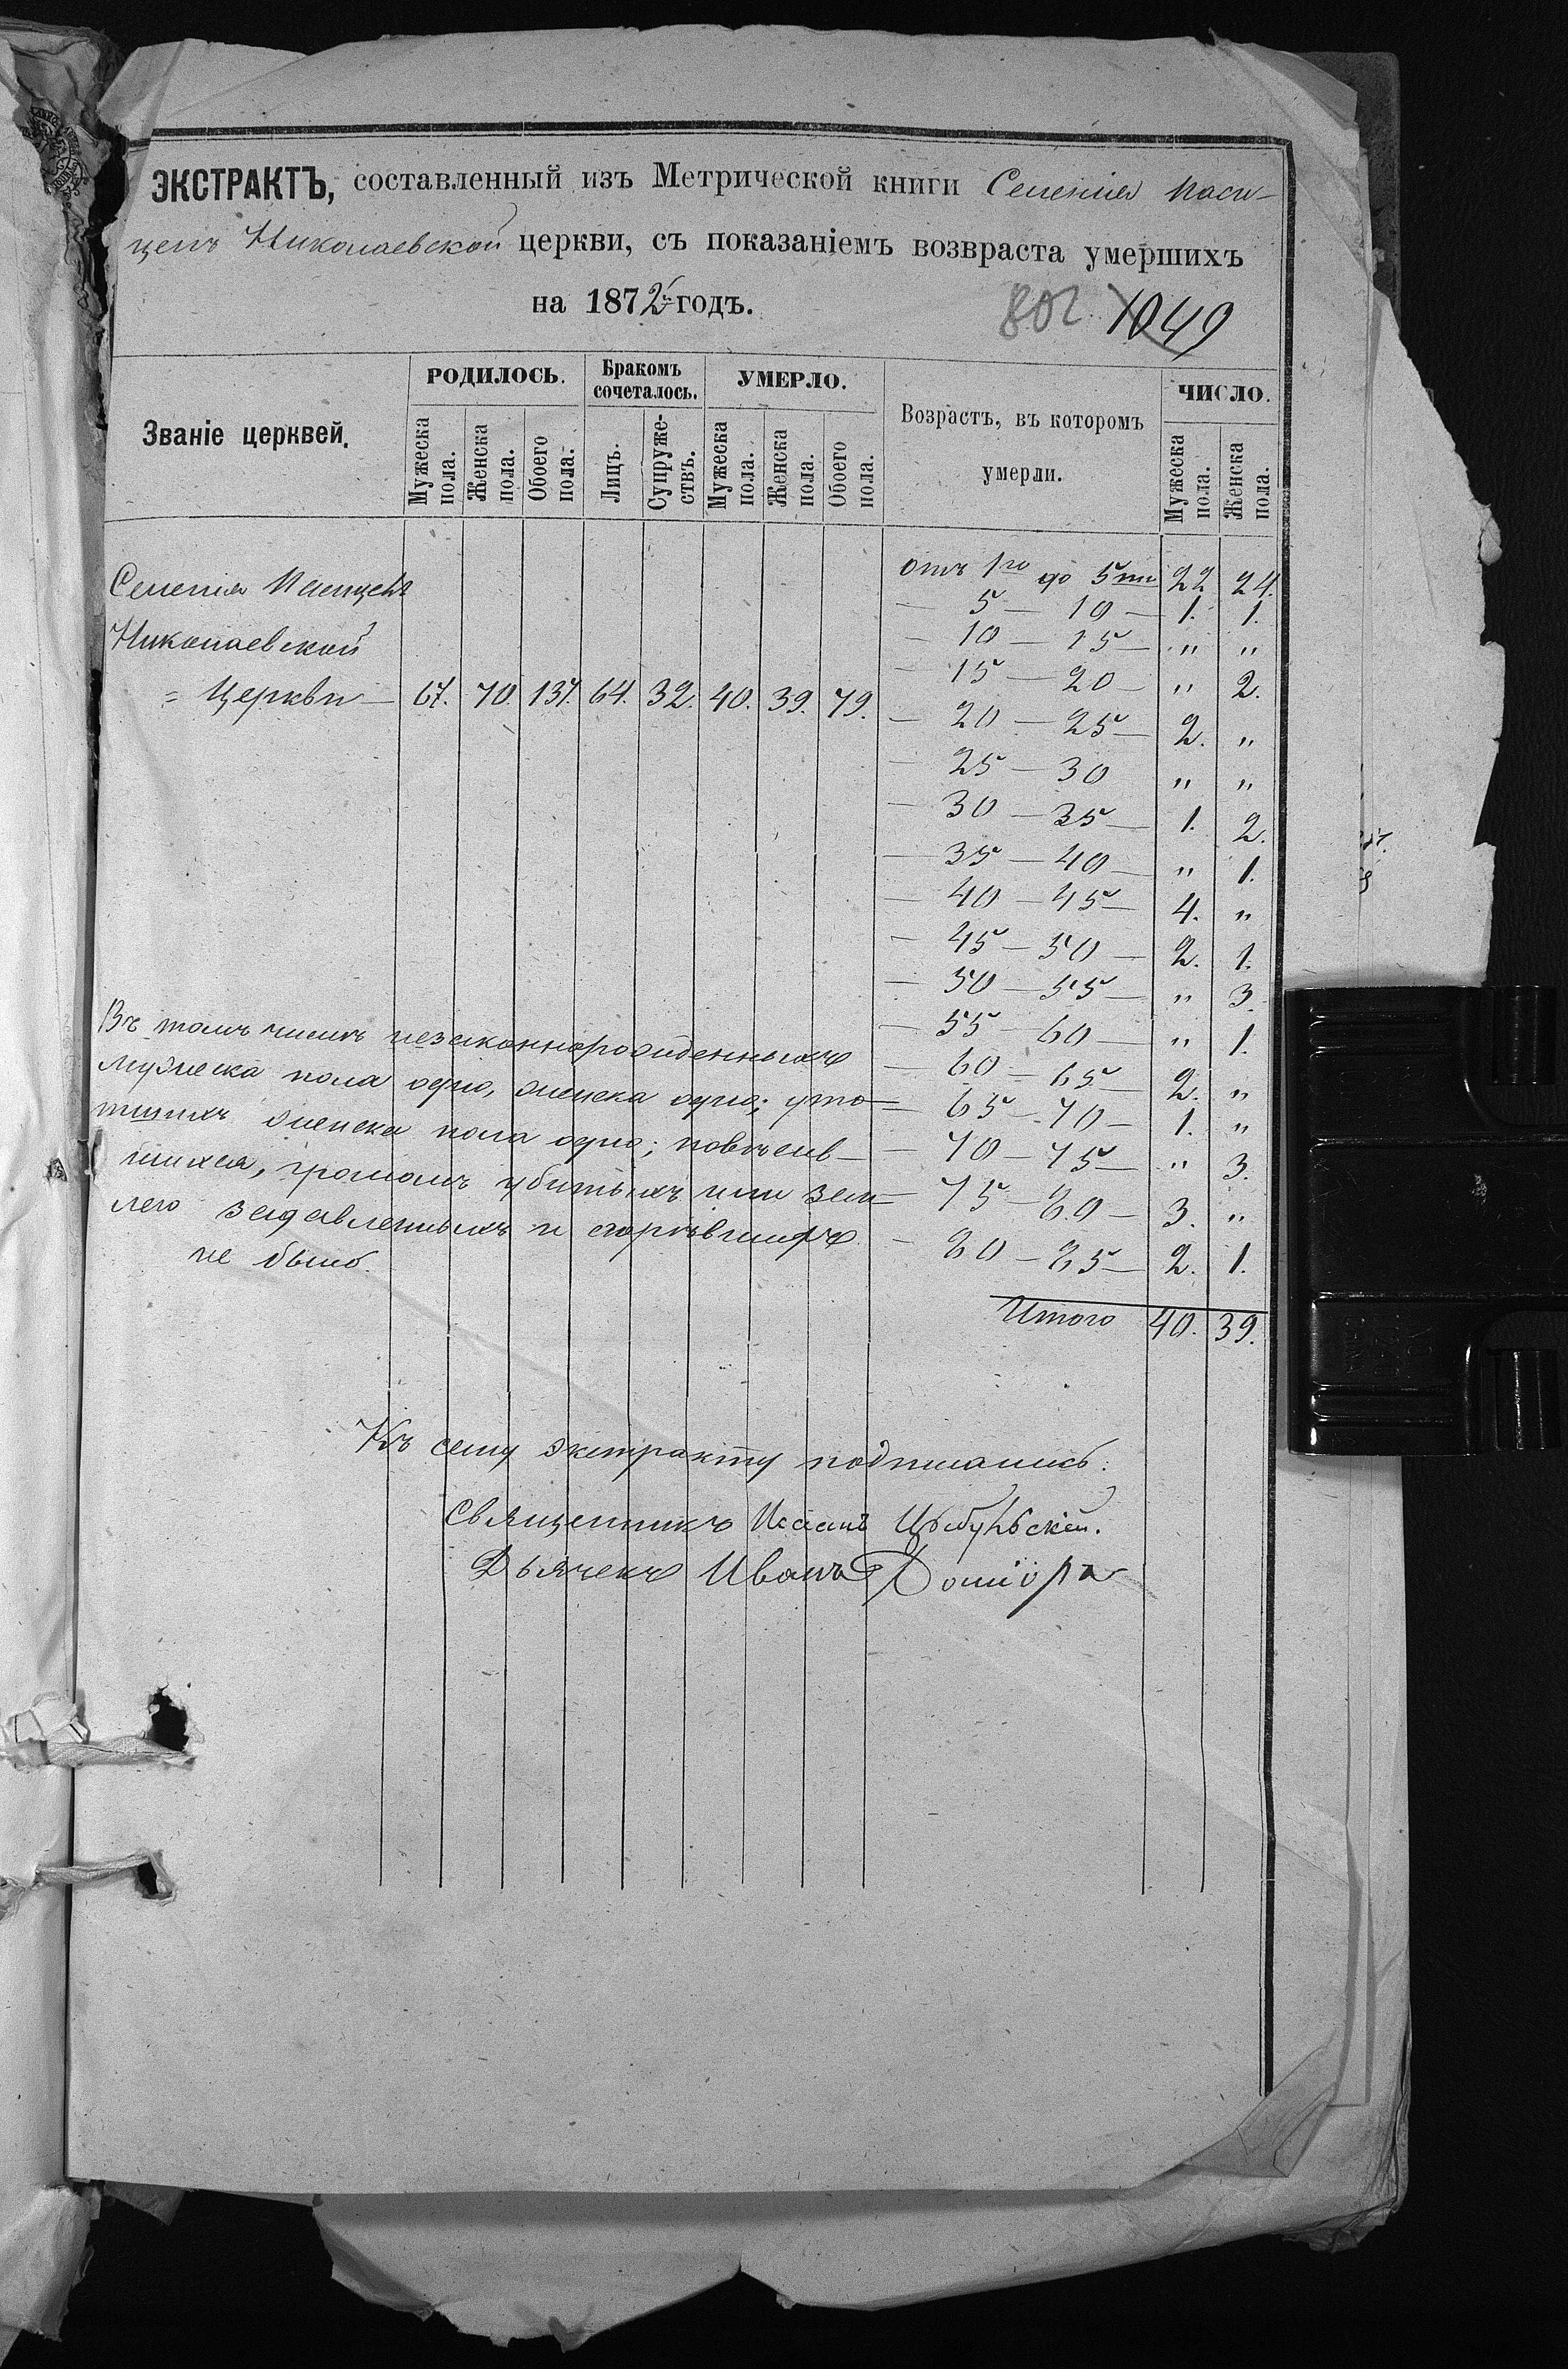 ЭКСТРАКТЪ, составленный изъ Метрической книги Селенія Паси-
целъ Николаевской церкви, съ показаніемъ возвраста умершихъ
на 1872 годъ.
802 1049
Званіе церквей.
РОДИЛОСЬ.
Бракомъ сочеталось.
УМЕРЛО.
Возрастъ, въ которомъ умерли.
ЧИСЛО.
Мужеска пола.
Женска пола.
Обоего пола.
Лицъ.
Супружествъ.
Мужеска пола.
Женска пола.
Обоего пола.
Мужеска пола.
Женска пола.
Селенія Пасицелъ
Николаевской
= Церкви — 67. 70. 137. 64. 32. 40. 39. 79.
отъ 1го до 5ти 22 24.
— 5 — 10 — 1. 1.
— 10 — 15 — " "
— 15 — 20 — " 2.
— 20 — 25 — 2. "
— 25 — 30 " "
— 30 — 35 — 1. 2.
— 35 — 40 — " 1.
— 40 — 45 — 4. "
— 45 — 50 — 2. 1.
— 50 — 55 — " 3.
— 55 — 60 — " 1.
— 60 — 65 — 2. "
— 65 — 70 — 1. "
— 70 — 75 — " 3.
— 75 — 80 — 3. "
— 80 — 85 — 2. 1.
Итого 40. 39.
Въ томъ числѣ незаконнорожденныхъ
мужеска пола одно, женска одно; уто-
пшихъ женска пола одно; повѣсив-
шихся, громомъ убитыхъ или зем-
лею задавленныхъ и сгорѣвшихъ
не было.
Къ сему экстракту подписались:
Священникъ Исаакъ Цыбульскій.
Дьячекъ Иванъ